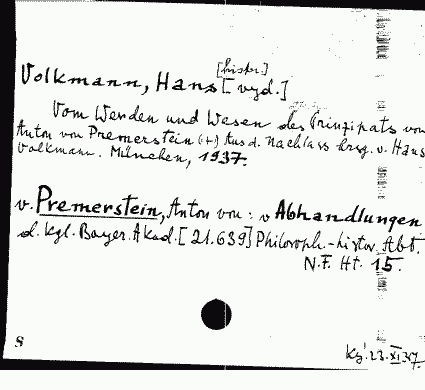 [histor.]
Volkmann, Hans [vyd.]
Vom Werden und Wesen des Prinzipats von
Anton von Premerstein (+) Aus d. Nachlass hrsg. v. Hans
Volkmann. München, 1937.
v. Premerstein, Anton von: v Abhandlungen
d. Kgl. Bayer. Akad. [21.639] Philosoph.-histor. Abt.
N.F. Ht. 15.
8
23.XI.37.